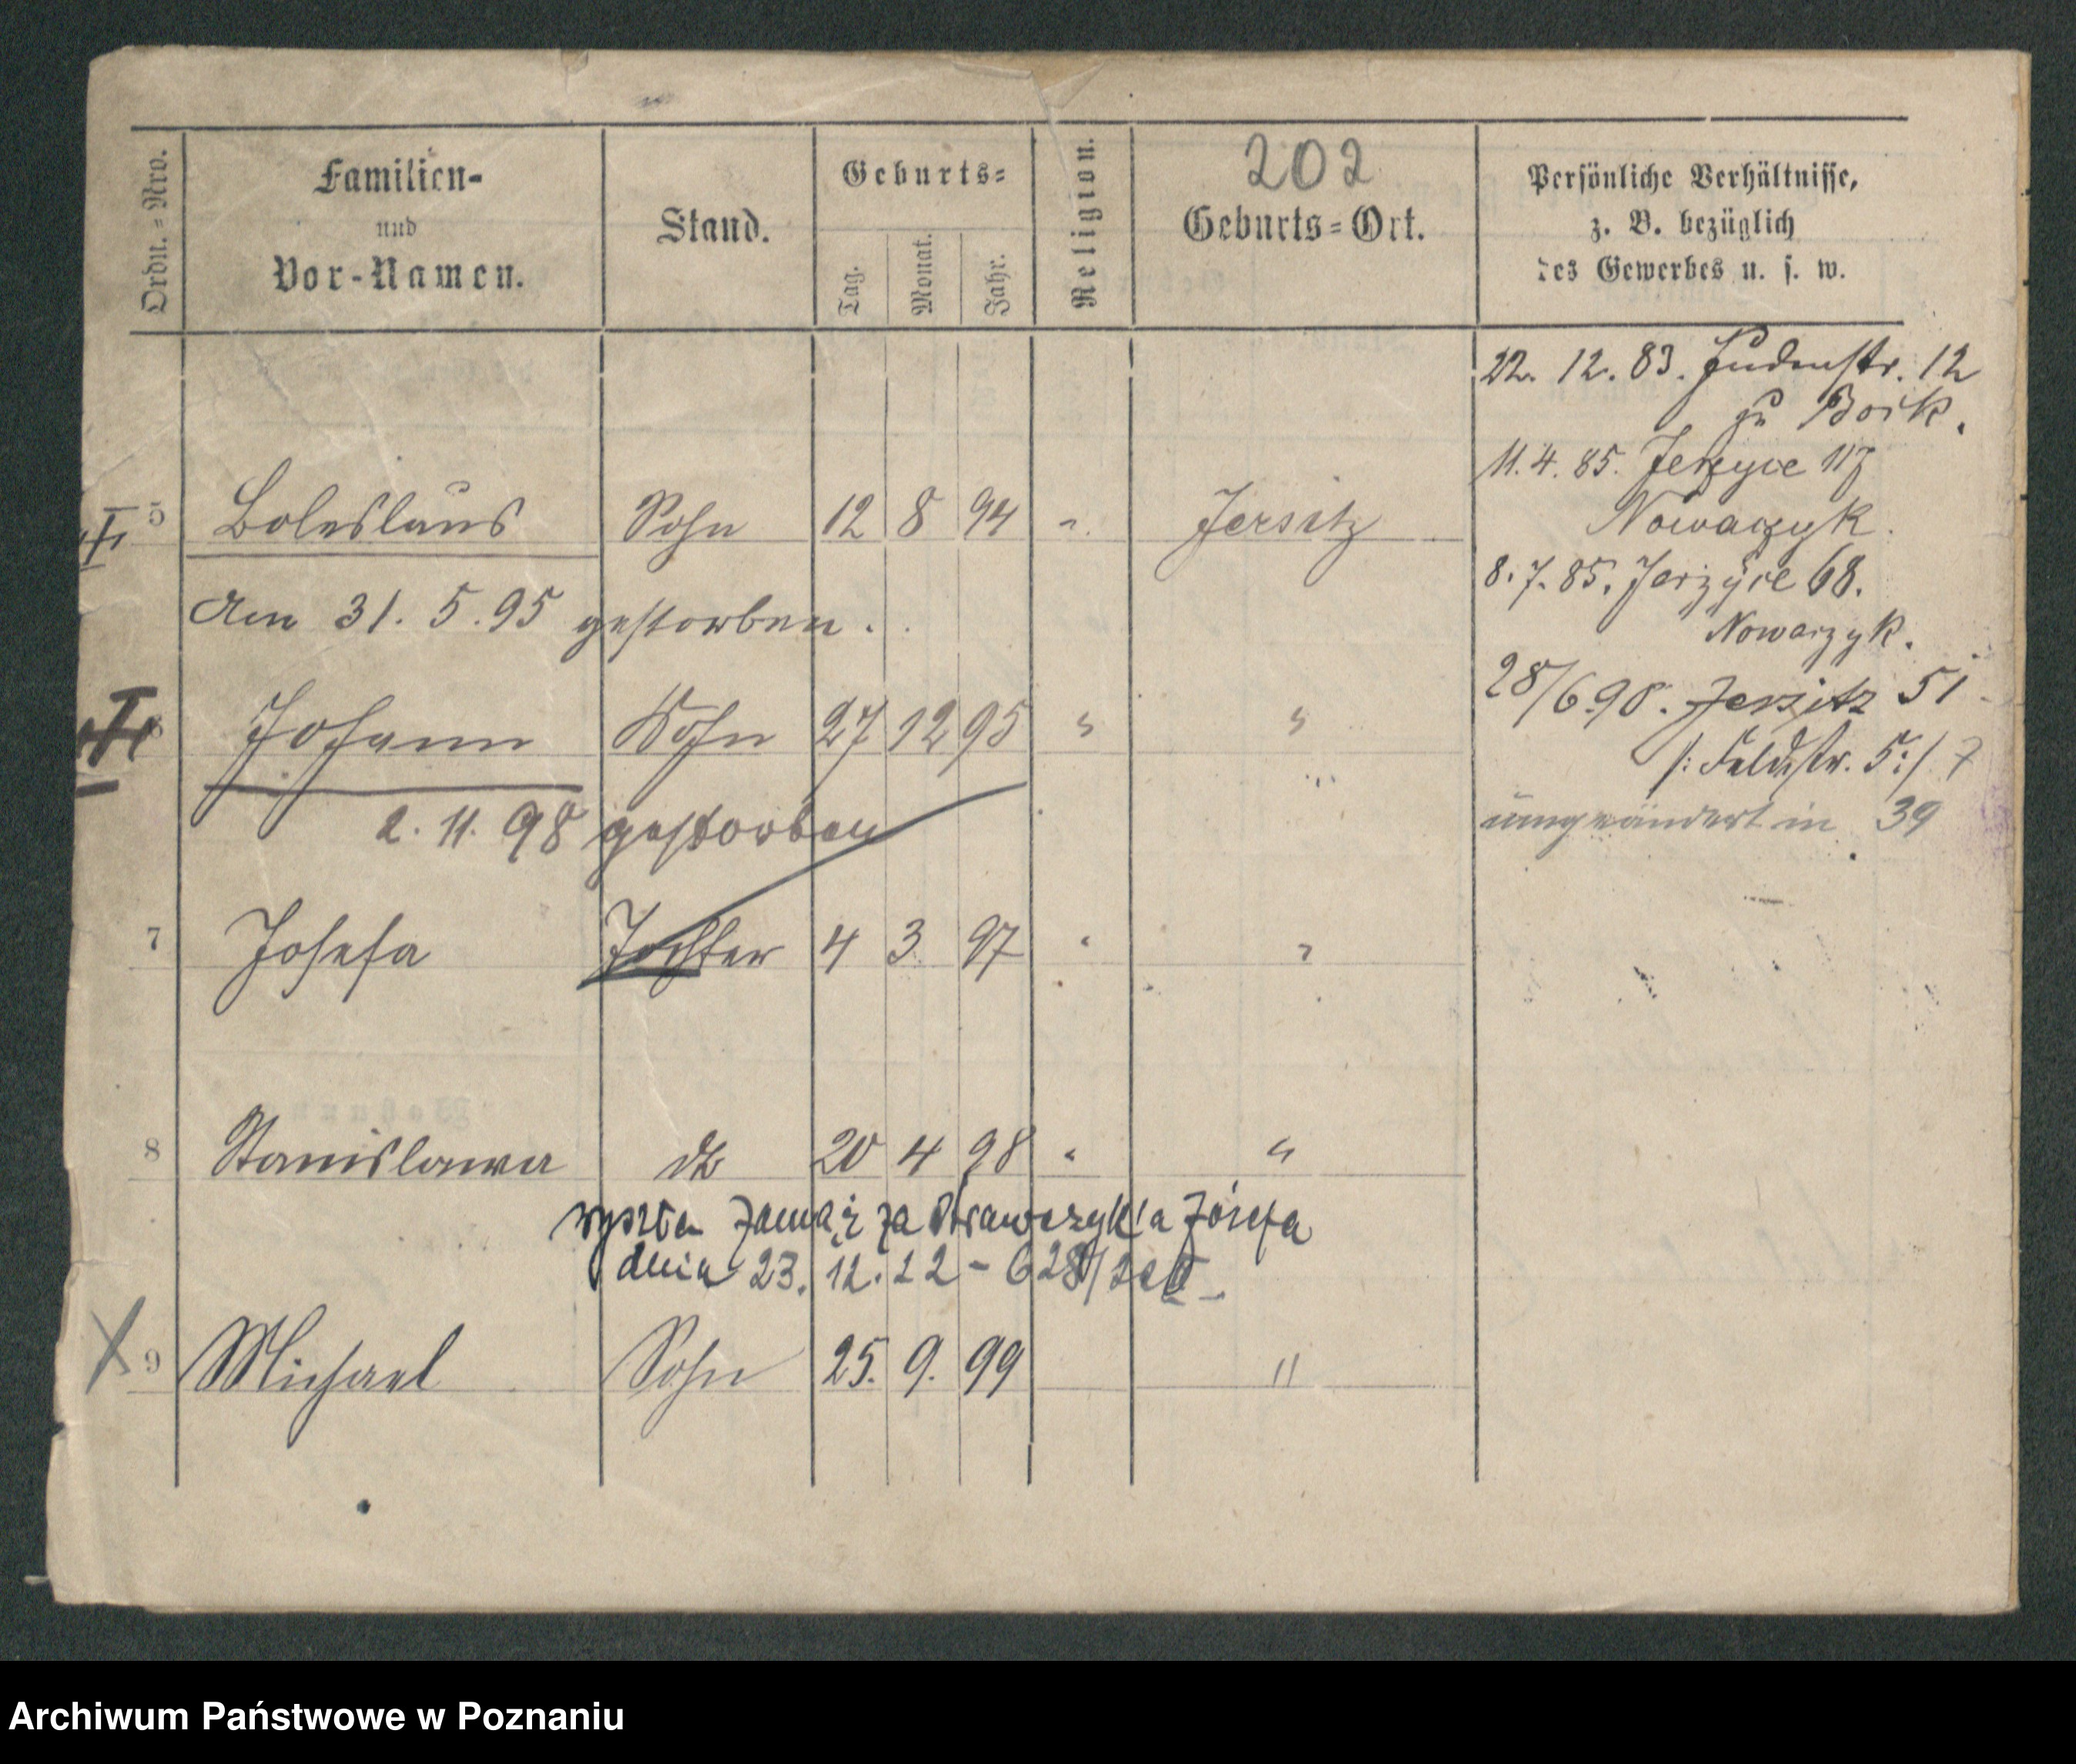 202
Ordn.=Nro.
Familien-
und
Vor-Namen.
Stand.
Geburts=
Tag.
Monat.
Jahr.
Religion.
Geburts=Ort.
Persönliche Verhältnisse,
z. B. bezüglich
des Gewerbes u. s. w.
22. 12. 83. Judenstr. 12
zu Boik.
11. 4. 85. Jerzyce 117
Nowaczyk.
5 Boleslaus Sohn 12 8 94 ". Jersitz
8. 7. 85. Jerzyce 68.
Nowaczyk.
Am 31. 5. 95 gestorben.
28/6 98. Jersitz 51
6 Johann Sohn 27 12 95 " "
/: Feldstr. 5 :/ 7
umgeändert in 39
2. 11. 98 gestorben
7 Josefa Tochter 4 3 97 " "
8 Stanislawa dto 20 4 98 " "
wyszła zamąż za Krawczyka Józefa
dnia 23. 12. 22 - 628/
9 Michael Sohn 25. 9. 99 "
Archiwum Państwowe w Poznaniu